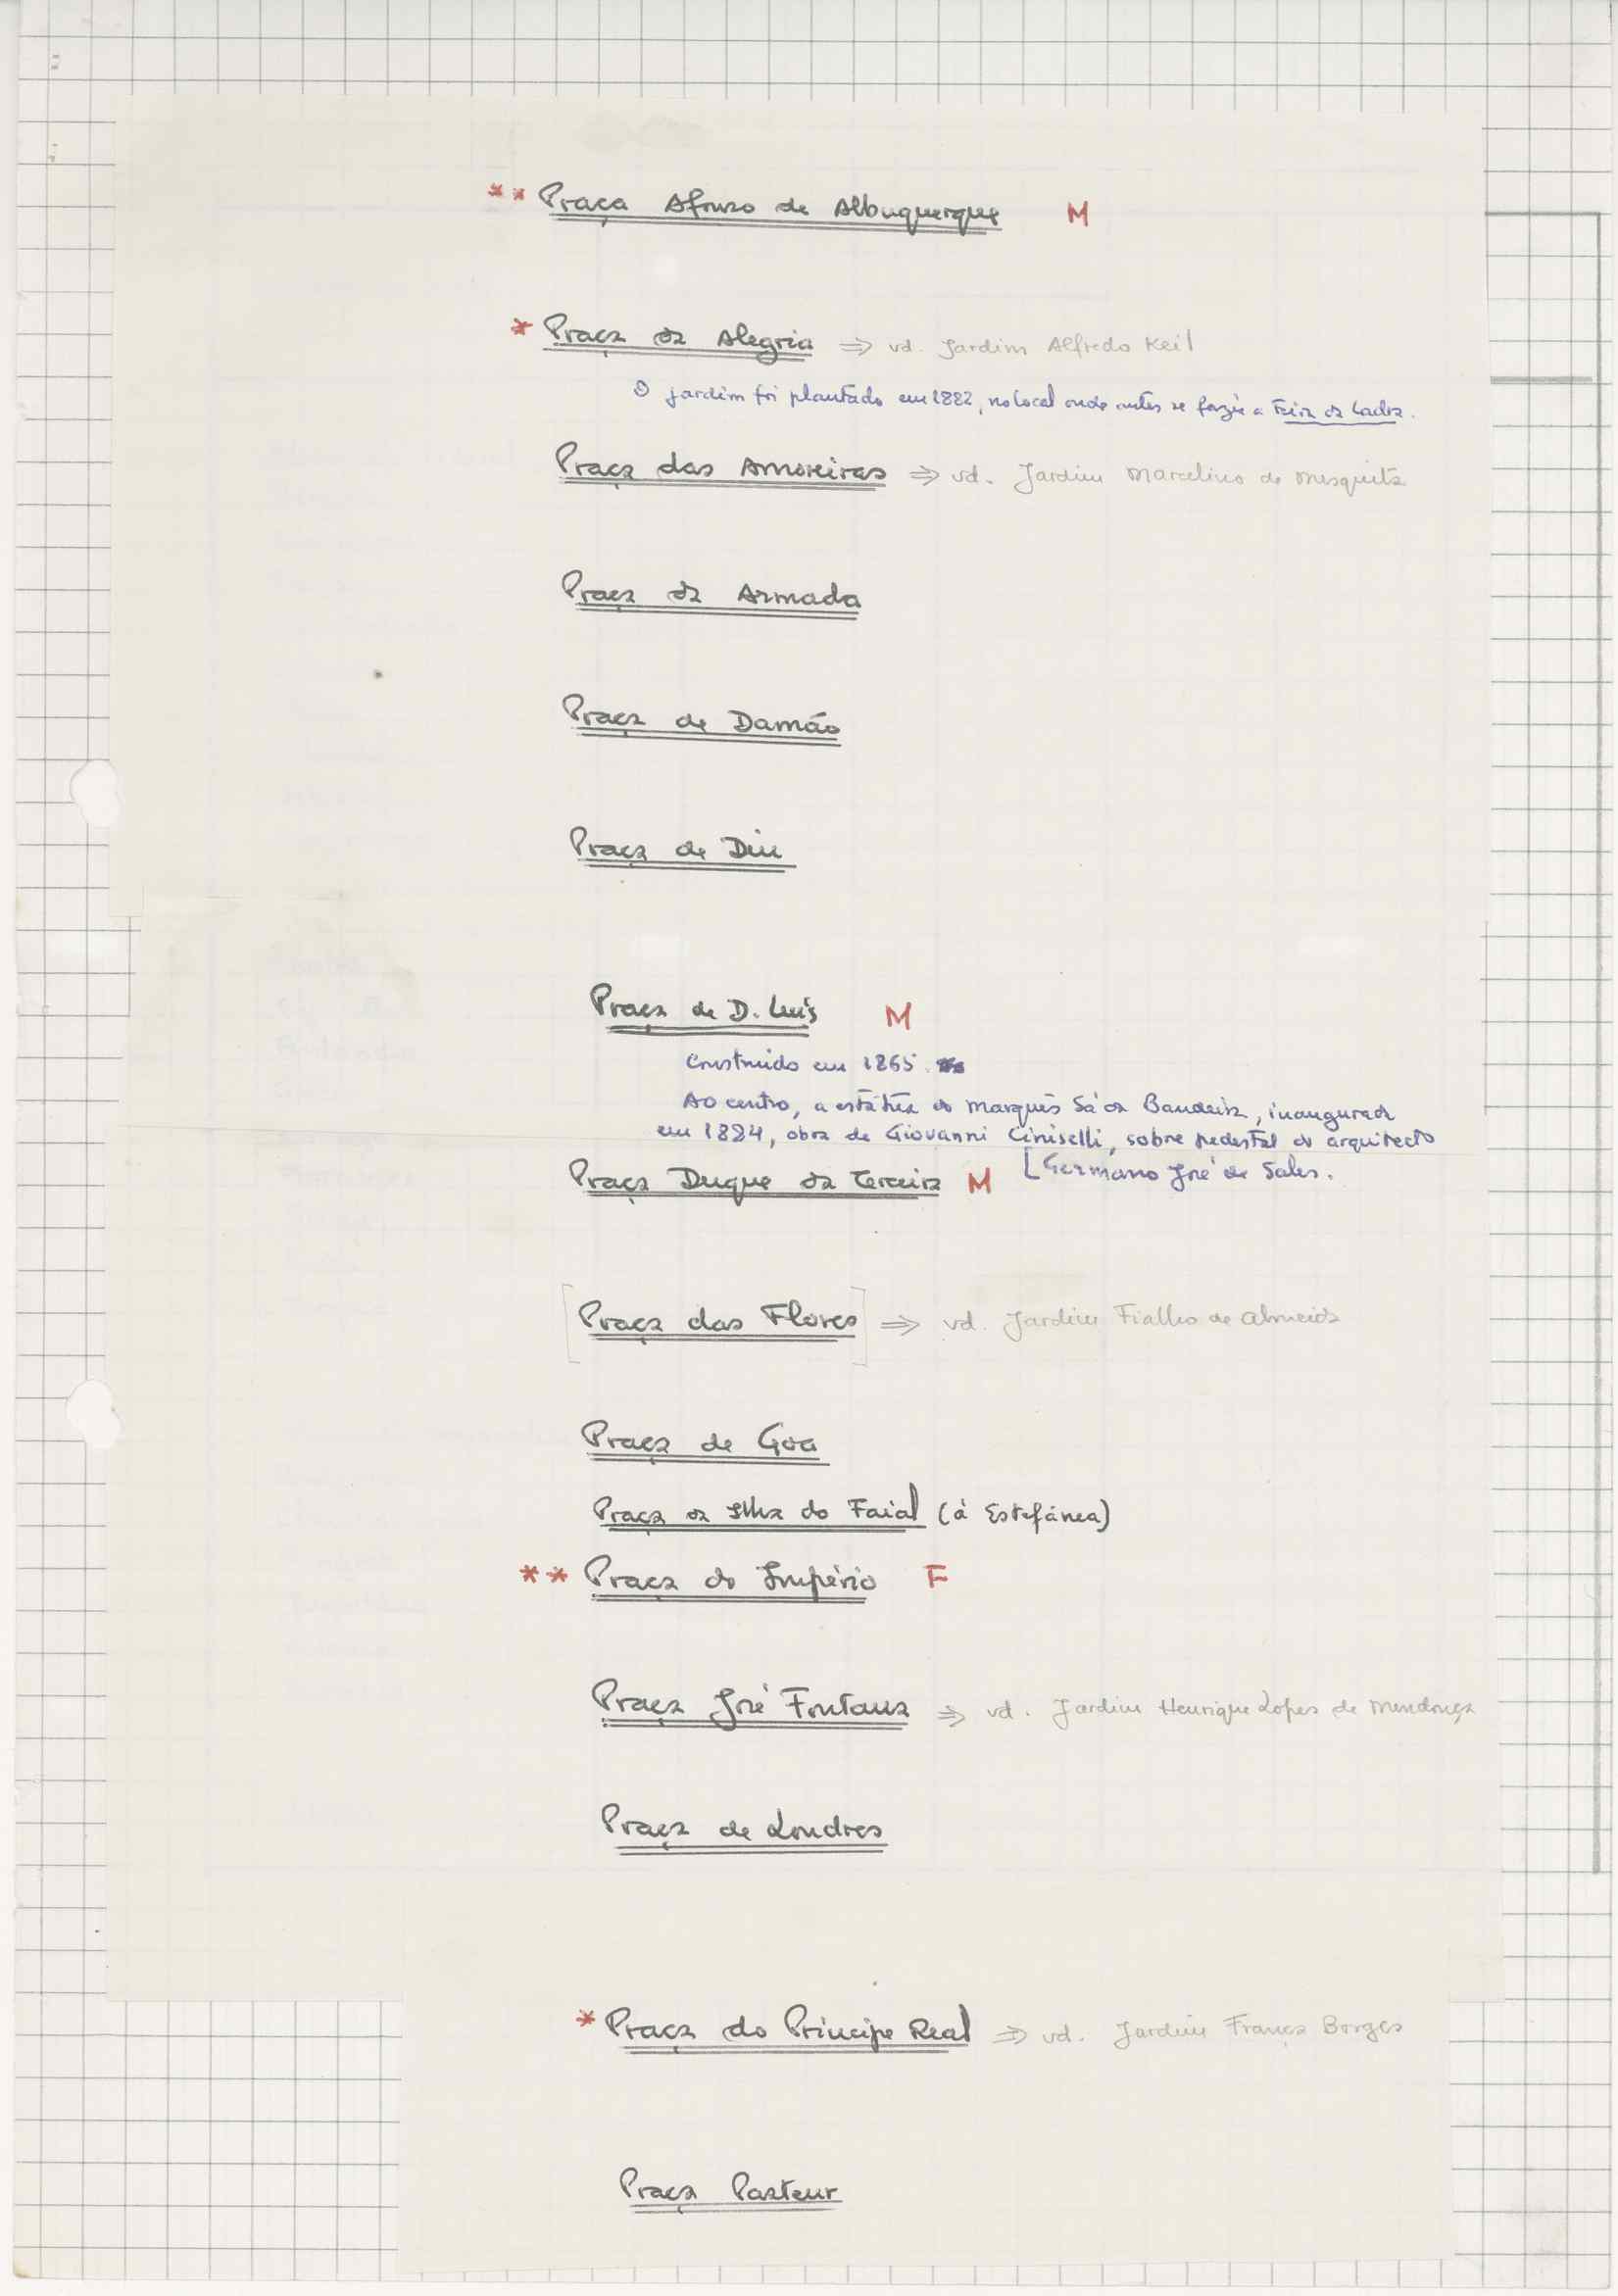 ** Praça Afonso de Albuquerque M
* Praça da Alegria ⇒ vd. Jardim Alfredo Keil
O jardim foi plantado em 1882, no local onde antes se fazia a Feira da Ladra.
Praça das Amoreiras ⇒ vd. Jardim Marcelino de Mesquita
Praça da Armada
Praça de Damão
Praça de Diu
Praça de D. Luís M
Construído em 1865.
Ao centro, a estátua do Marquês Sá da Bandeira, inaugurada
em 1884, obra de Giovanni Ciniselli, sobre pedestal do arquitecto
[Germano José de Sales.
Praça Duque da Terceira M
[Praça das Flores] ⇒ vd. Jardim Fialho de Almeida
Praça de Goa
Praça da Ilha do Faial (à Estefânea)
** Praça do Império F
Praça José Fontana ⇒ vd. Jardim Henrique Lopes de Mendonça
Praça de Londres
* Praça do Príncipe Real ⇒ vd. Jardim França Borges
Praça Pasteur